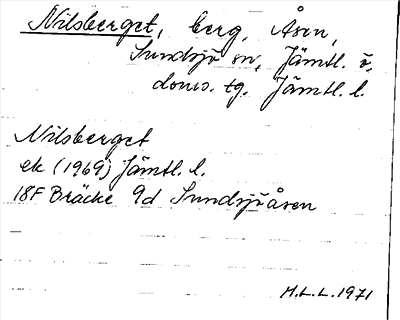 Nilsberget, berg, Åsen,
Sundsjö sn, Jämtl. ö.
doms. tg. Jämtl. l.
Nilsberget
ek (1969) Jämtl. l.
18F Bräcke 9d Sundsjöåsen
M.L.L. 1971